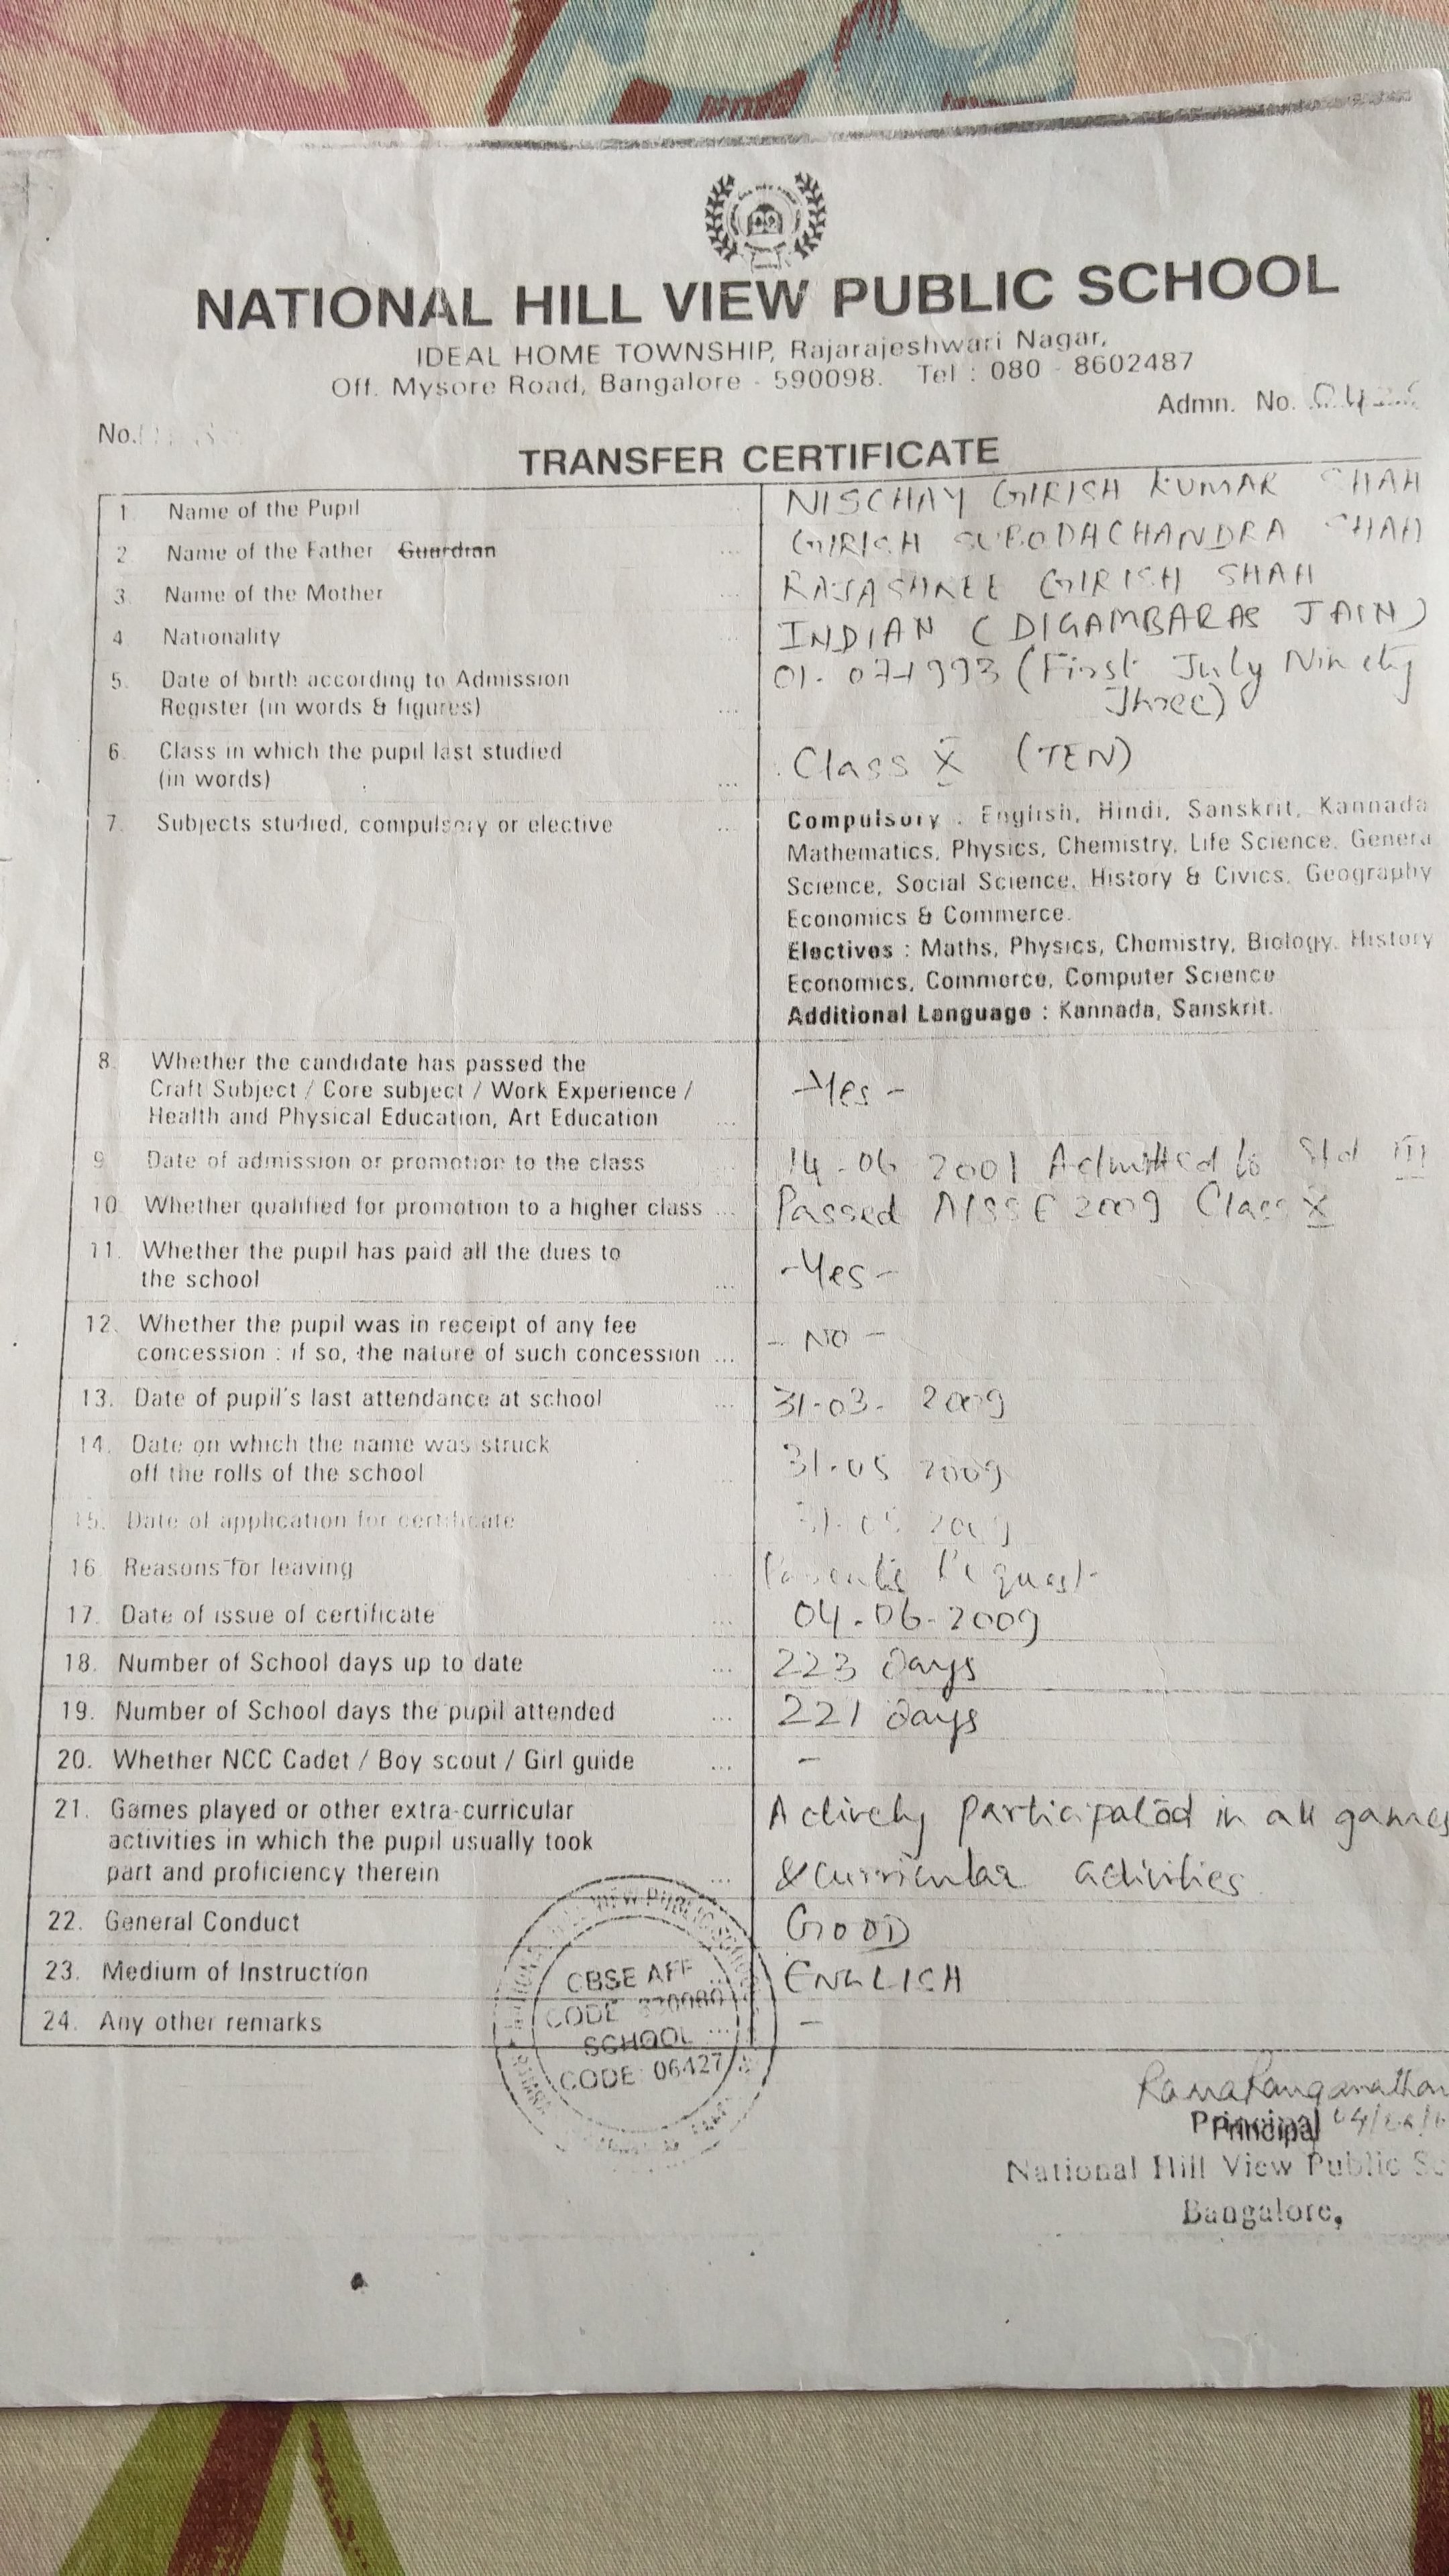 NATIONAL HILL VIEW PUBLIC SCHOOL
IDEAL HOME TOWNSHIP, Rajarajeshwari Nagar,
Off. Mysore Road, Bangalore - 590098. Tel : 080 - 8602487
Admn. No.
No.
TRANSFER CERTIFICATE
1. Name of the Pupil NISCHAY GIRISH KUMAR SHAH
2. Name of the Father Guardian ... GIRISH SUBODACHANDRA SHAH
3. Name of the Mother ... RAJASHREE GIRISH SHAH
4. Nationality ... INDIAN (DIGAMBARAS JAIN)
5. Date of birth according to Admission 01-07-1993 (First July Ninety
Register (in words & figures) ... Three)
6. Class in which the pupil last studied Class X (TEN)
(in words) ...
7. Subjects studied, compulsory or elective ... Compulsory : English, Hindi, Sanskrit, Kannada
Mathematics, Physics, Chemistry, Life Science, Genera
Science, Social Science, History & Civics, Geography
Economics & Commerce.
Electives : Maths, Physics, Chemistry, Biology, History
Economics, Commerce, Computer Science
Additional Language : Kannada, Sanskrit.
8. Whether the candidate has passed the
Craft Subject / Core subject / Work Experience / - Yes -
Health and Physical Education, Art Education ...
9. Date of admission or promotion to the class 14-06 2001 Admitted to Std III
10. Whether qualified for promotion to a higher class ... Passed AISSE 2009 Class X
11. Whether the pupil has paid all the dues to - Yes -
the school ...
12. Whether the pupil was in receipt of any fee - NO -
concession : if so, the nature of such concession ...
13. Date of pupil's last attendance at school ... 31-03- 2009
14. Date on which the name was struck 31-05 2009
off the rolls of the school ...
15. Date of application for certificate 31-05 2009
16. Reasons for leaving ... Parents Request
17. Date of issue of certificate ... 04-06-2009
18. Number of School days up to date ... 223 days
19. Number of School days the pupil attended ... 221 days
20. Whether NCC Cadet / Boy scout / Girl guide ... -
21. Games played or other extra-curricular Actively participated in all games
activities in which the pupil usually took
part and proficiency therein ... & curricular activities
22. General Conduct GOOD
23. Medium of Instruction ... ENGLISH
24. Any other remarks ... -
VIEW PUBLIC
CBSE AFF
CODE
SCHOOL
CODE: 06427
Principal
National Hill View Public Sc
Bangalore,